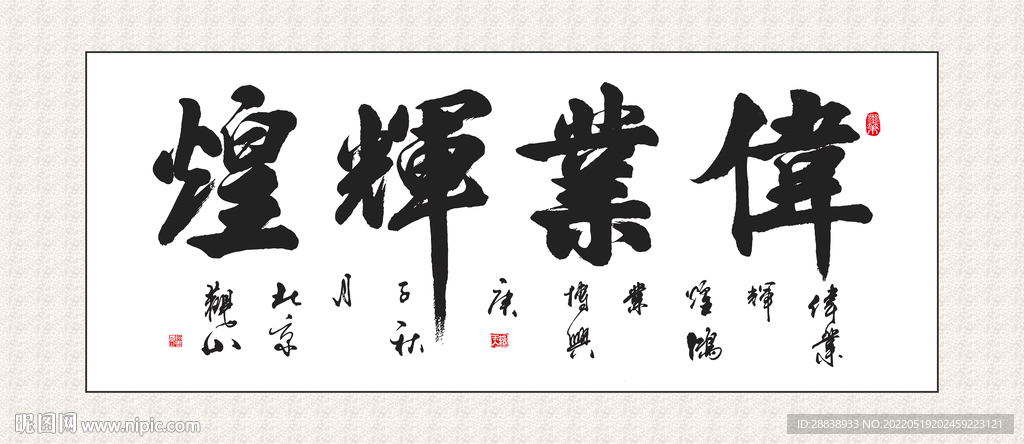 偉業輝煌
偉業
輝
煌鴻
業
博興
庚
子秋
月
北京
觀山
昵图网 www.nipic.com
ID:28838933 NO:20220519202459223121